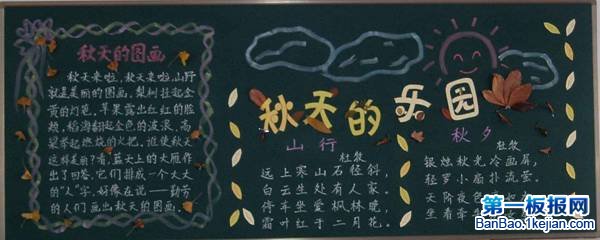 秋天的图画
秋天来啦,秋天来啦,山野
就是美丽的图画,梨树挂起金
黄的灯笼,苹果露出红红的脸
颊,稻海翻起金色的波浪,高
粱举起燃烧的火把,谁使秋天
这样美丽?看,蓝天上的大雁作
出了回答,它们排成一个大大
的"人"字,好像在说——勤劳
的人们画出秋天的图画。
秋天的乐园
山行
杜牧
远上寒山石径斜,
白云生处有人家。
停车坐爱枫林晚,
霜叶红于二月花。
秋夕
杜牧
银烛秋光冷画屏,
轻罗小扇扑流萤。
天阶夜色
坐看牵
第一板报网
BanBao.1kejian.com